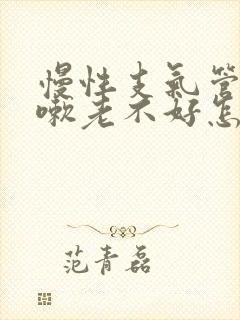 慢性支气管
嗽老不好怎
范青磊